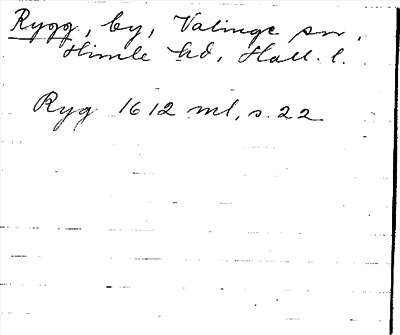 Rygg, by, Valinge sn,
Himle hd, Hall. l.
Ryg 1612 ml, s. 22